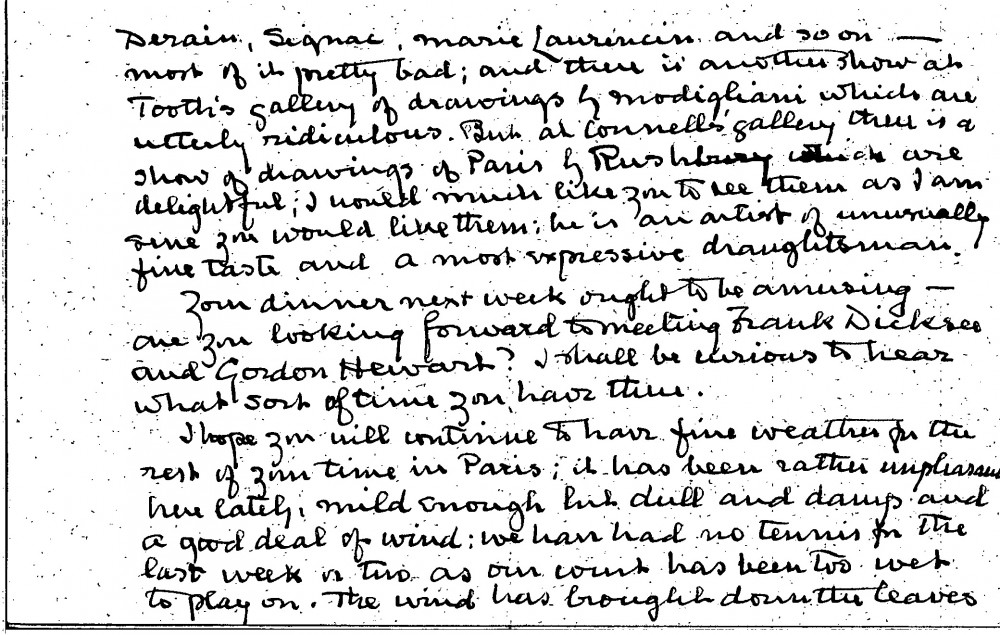 Derain, Signac, Marie Laurencin and so on —
most of it pretty bad; and there is another show at
Tooth's gallery of drawings by Modigliani which are
utterly ridiculous. But at Connell's gallery there is a
show of drawings of Paris by Rushbury which are
delightful; I would much like you to see them as I am
sure you would like them: he is an artist of unusually
fine taste and a most expressive draughtsman.
Your dinner next week ought to be amusing —
are you looking forward to meeting Frank Dicksee
and Gordon Hewart? I shall be curious to hear
what sort of time you have there.
I hope you will continue to have fine weather for the
rest of your time in Paris; it has been rather unpleasant
here lately, mild enough but dull and damp and
a good deal of wind: we have had no tennis for the
last week or two as our court has been too wet
to play on. The wind has brought down the leaves